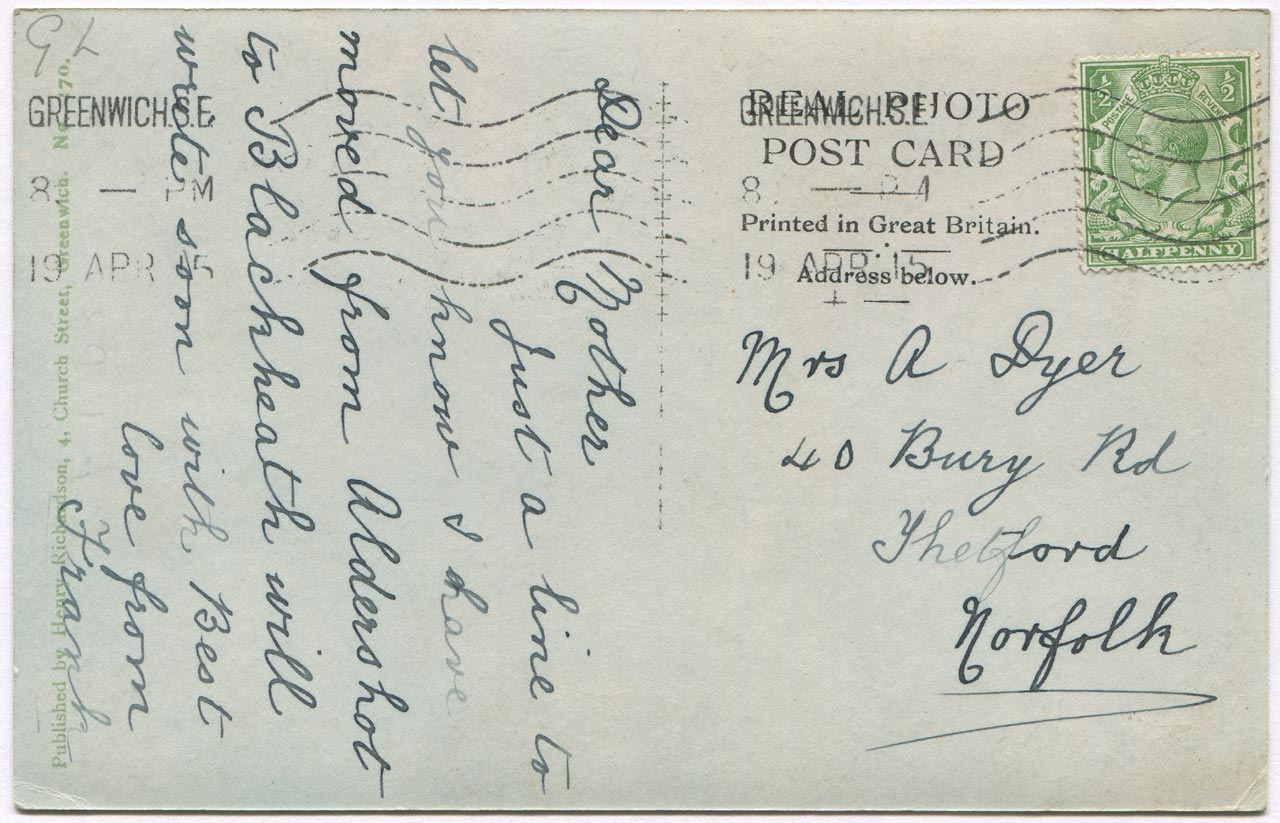 GL
GREENWICH.S.E.
8 — PM
19 APR 15
Dear Mother
Just a line to
let you know I have
moved from Aldershot
to Blackheath will
write soon with Best
love from
Frank
Published by Henry Richardson, 4, Church Street, Greenwich. No. 170.
REAL PHOTO
POST CARD
Printed in Great Britain.
Address below.
GREENWICH.S.E.
8
19 APR 15
1/2 1/2
POSTAGE REVENUE
HALFPENNY
Mrs A Dyer
40 Bury Rd
Thetford
Norfolk